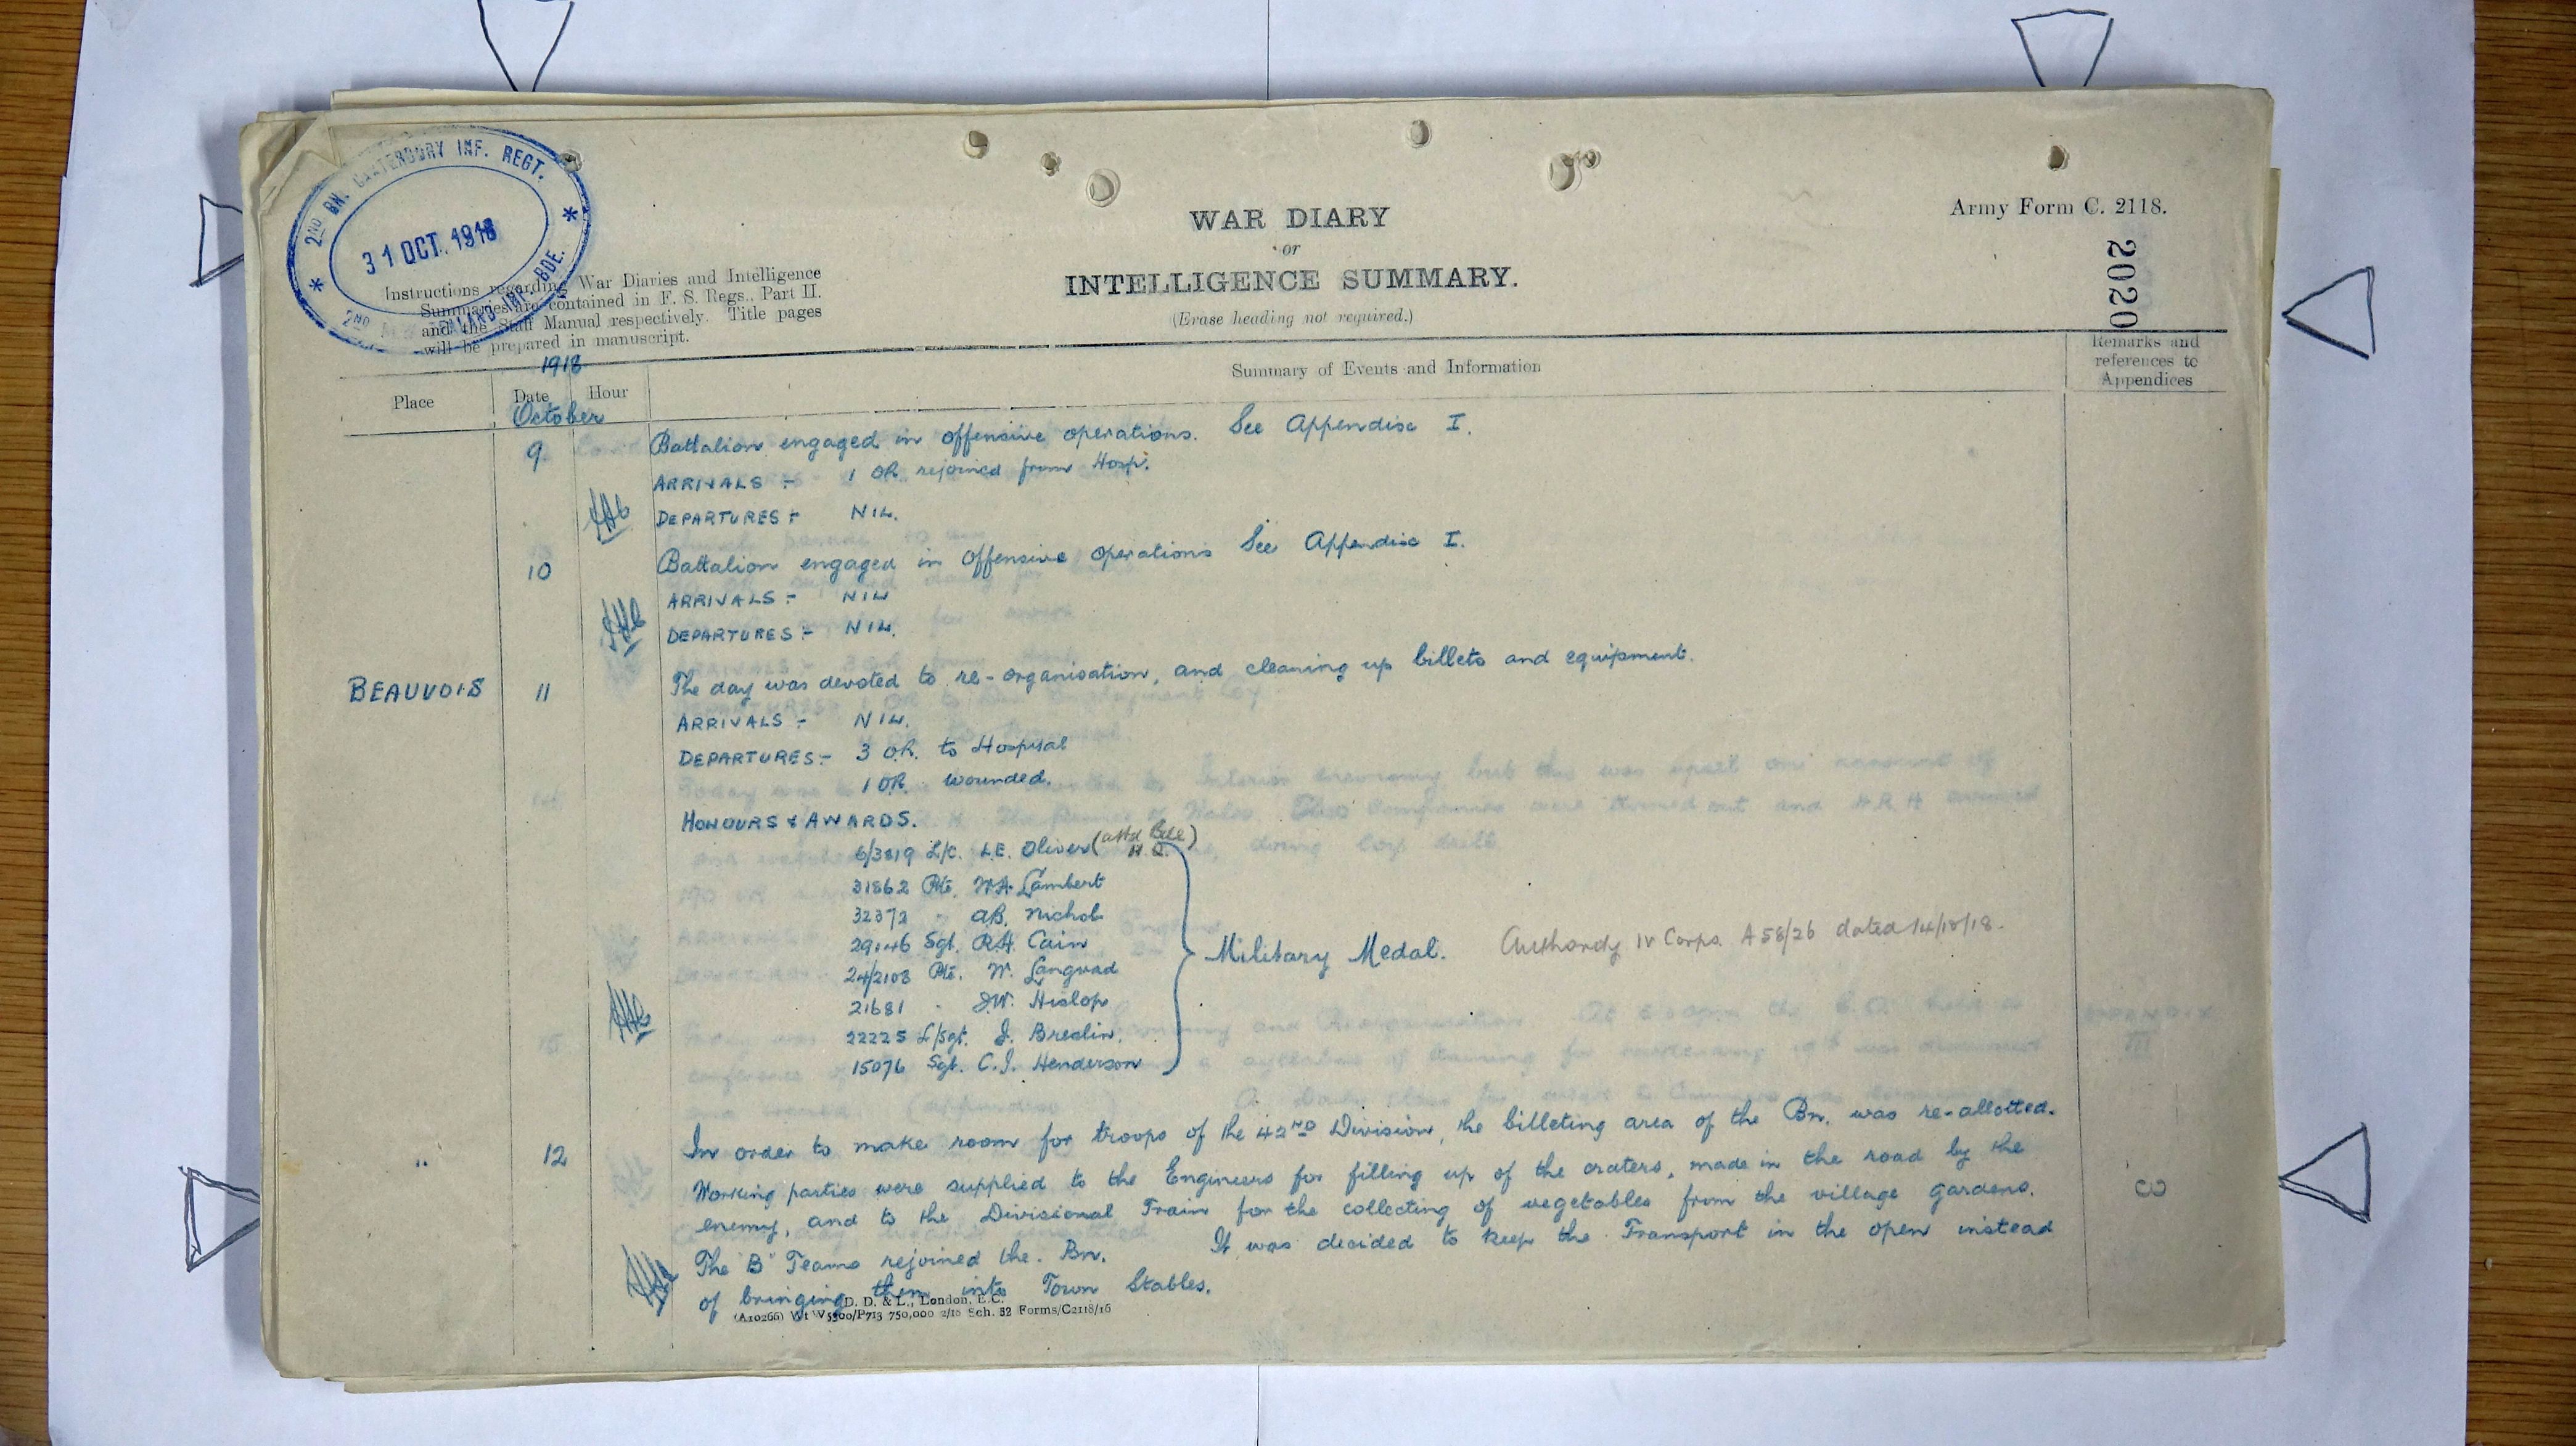 2ND BN. CANTERBURY INF. REGT.
31 OCT. 1918
2ND BDE.
Instructions regarding War Diaries and Intelligence
Summaries are contained in F. S. Regs., Part II.
and the Staff Manual respectively. Title pages
will be prepared in manuscript.
WAR DIARY
or
INTELLIGENCE SUMMARY.
(Erase heading not required.)
Army Form C. 2118.
2020
1918
Place Date Hour Summary of Events and Information Remarks and references to Appendices
October
9 Battalion engaged in offensive operations. See Appendix I.
ARRIVALS :- 1 OR rejoined from Hosp.
DEPARTURES :- NIL.
10 Battalion engaged in offensive operations See Appendix I.
ARRIVALS :- NIL
DEPARTURES :- NIL.
BEAUVOIS 11 The day was devoted to re-organisation, and cleaning up billets and equipment.
ARRIVALS :- NIL.
DEPARTURES :- 3 OR. to Hospital
1 OR. wounded.
HONOURS & AWARDS.
6/3819 L/C. L.E. Oliver (attd Bde H.Q.)
31862 Pte. W.A. Lambert
32372 " A.B. Nichol
29146 Sgt. R.H. Cain
24/2108 Pte. W. Langvad
21681 " J.W. Hislop
22225 L/Sgt. J. Bredin.
15076 Sgt. C.J. Henderson
Military Medal. Authority IV Corps A 58/26 dated 14/10/18.
" 12 In order to make room for troops of the 42ND Division, the billeting area of the Bn. was re-allotted.
Working parties were supplied to the Engineers for filling up of the craters, made in the road by the
enemy, and to the Divisional Train for the collecting of vegetables from the village gardens.
The "B" Teams rejoined the Bn. It was decided to keep the Transport in the open instead
of bringing them into Town Stables.
D. D. & L., London, E.C.
(A10266) Wt W5300/P713 750,000 2/18 Sch. 52 Forms/C2118/16
3